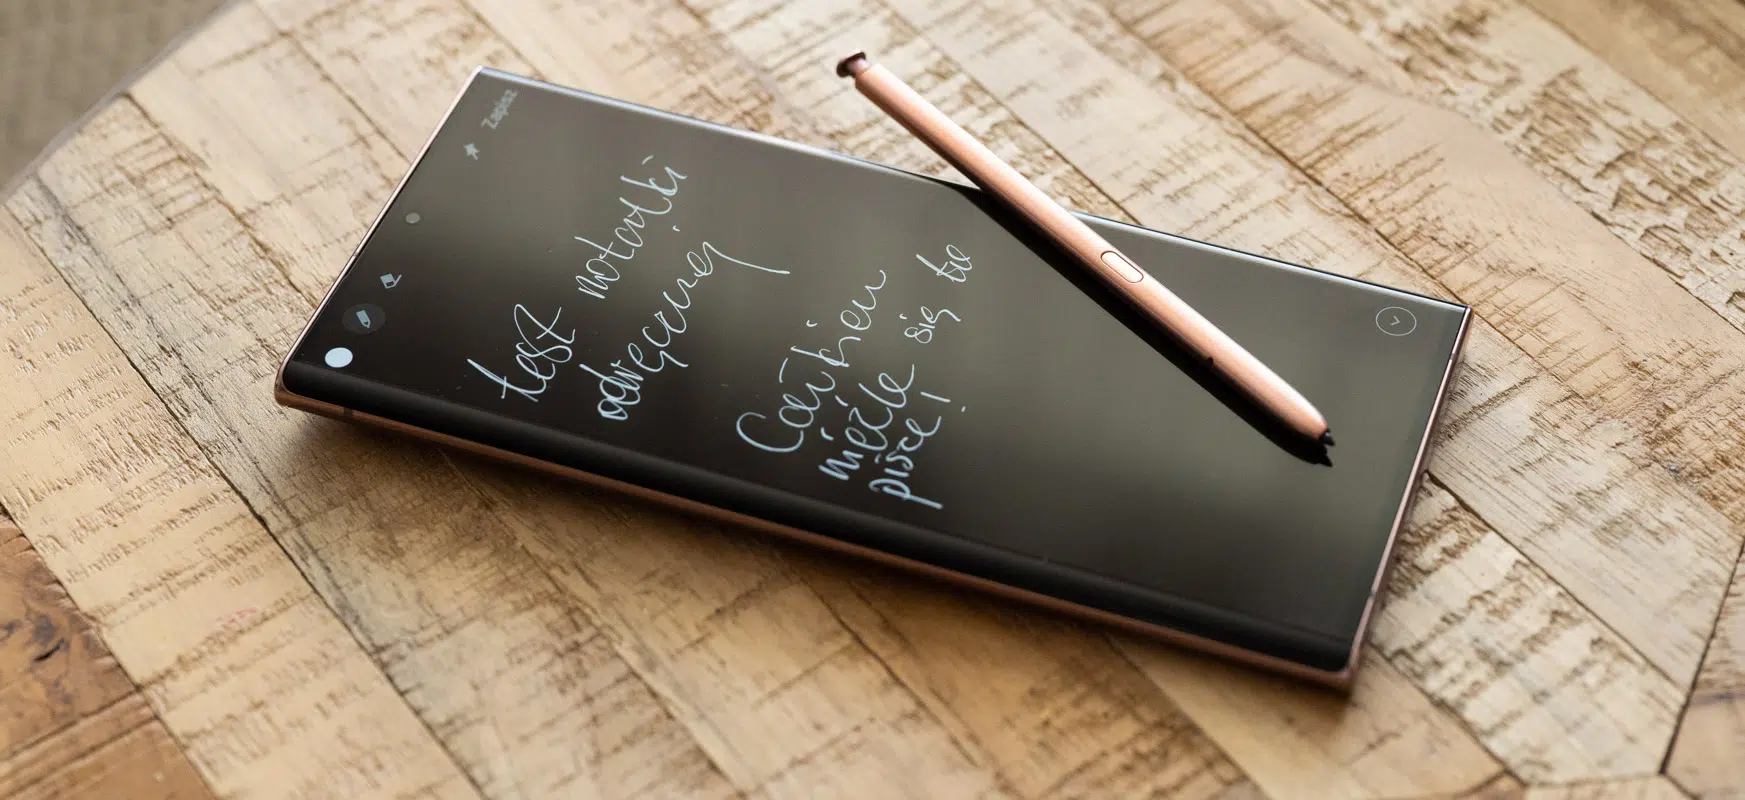 Zapisz
test notatki
odręcznej
Całkiem
nieźle się tu
pisze!